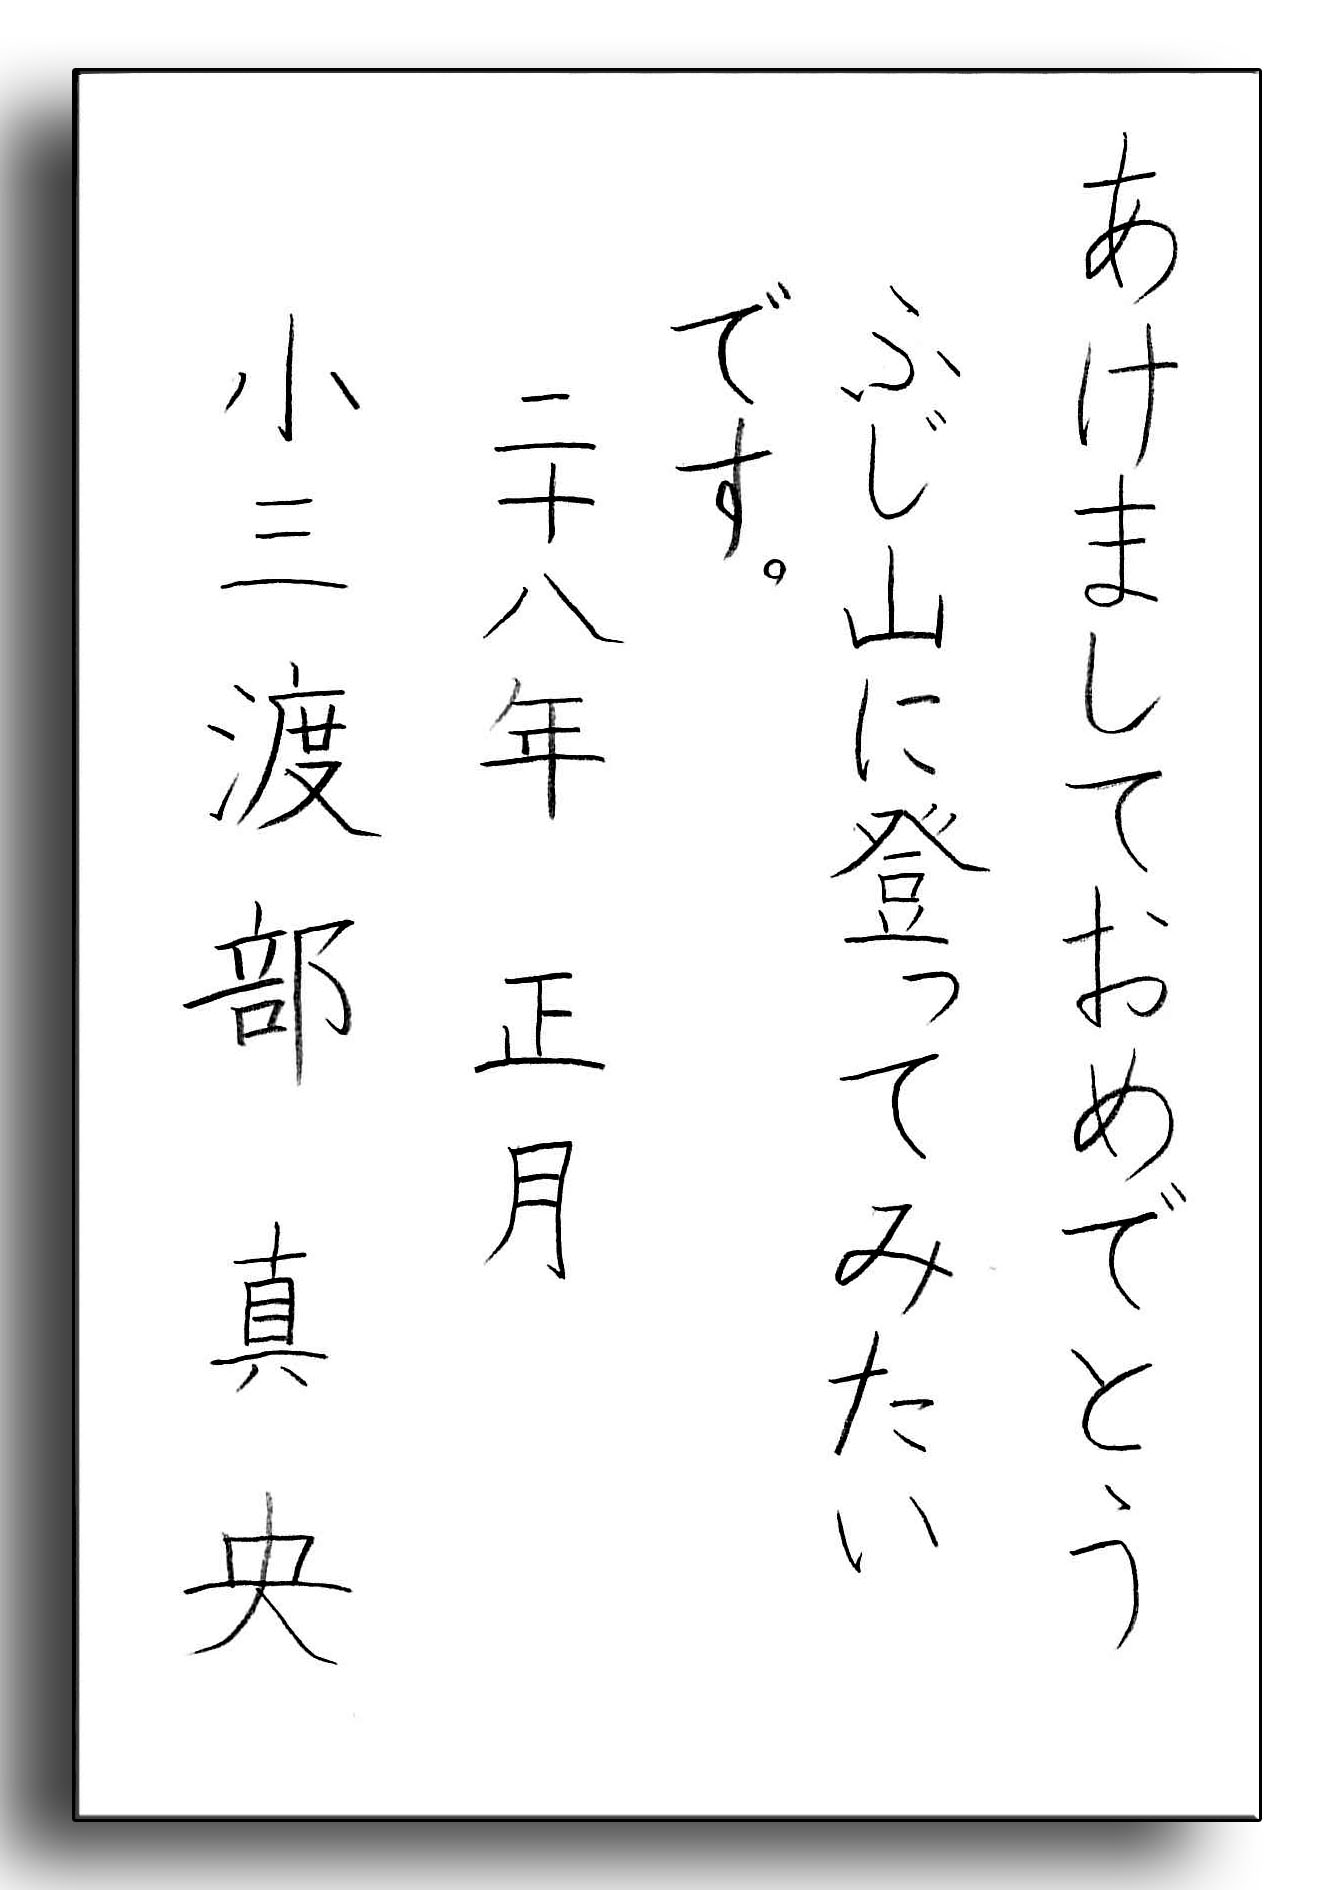 あけましておめでとう
ふじ山に登ってみたい
です。
二十八年 正月
小三渡部 真央